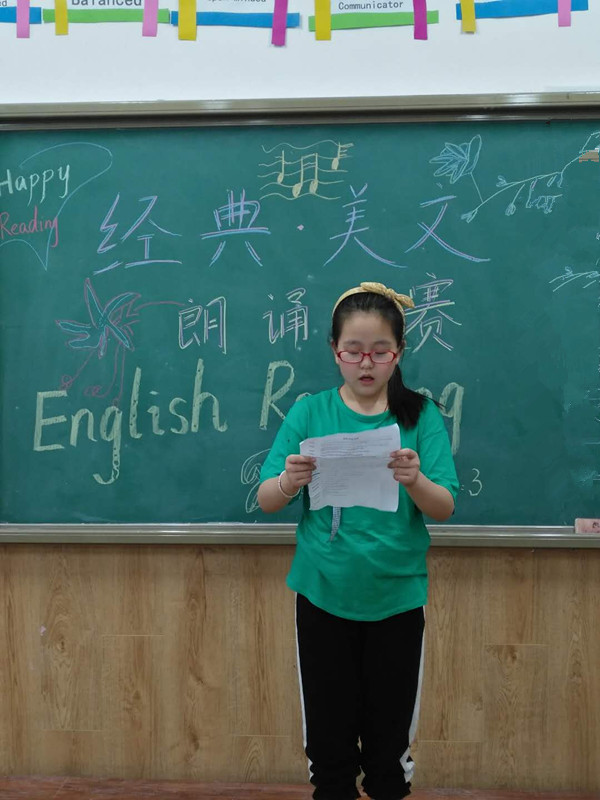 Balanced
Communicator
Happy
Reading
经典·美文
朗诵 赛
English Re